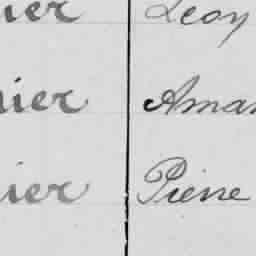 ier Leoy
nier Aman
ier Pierre